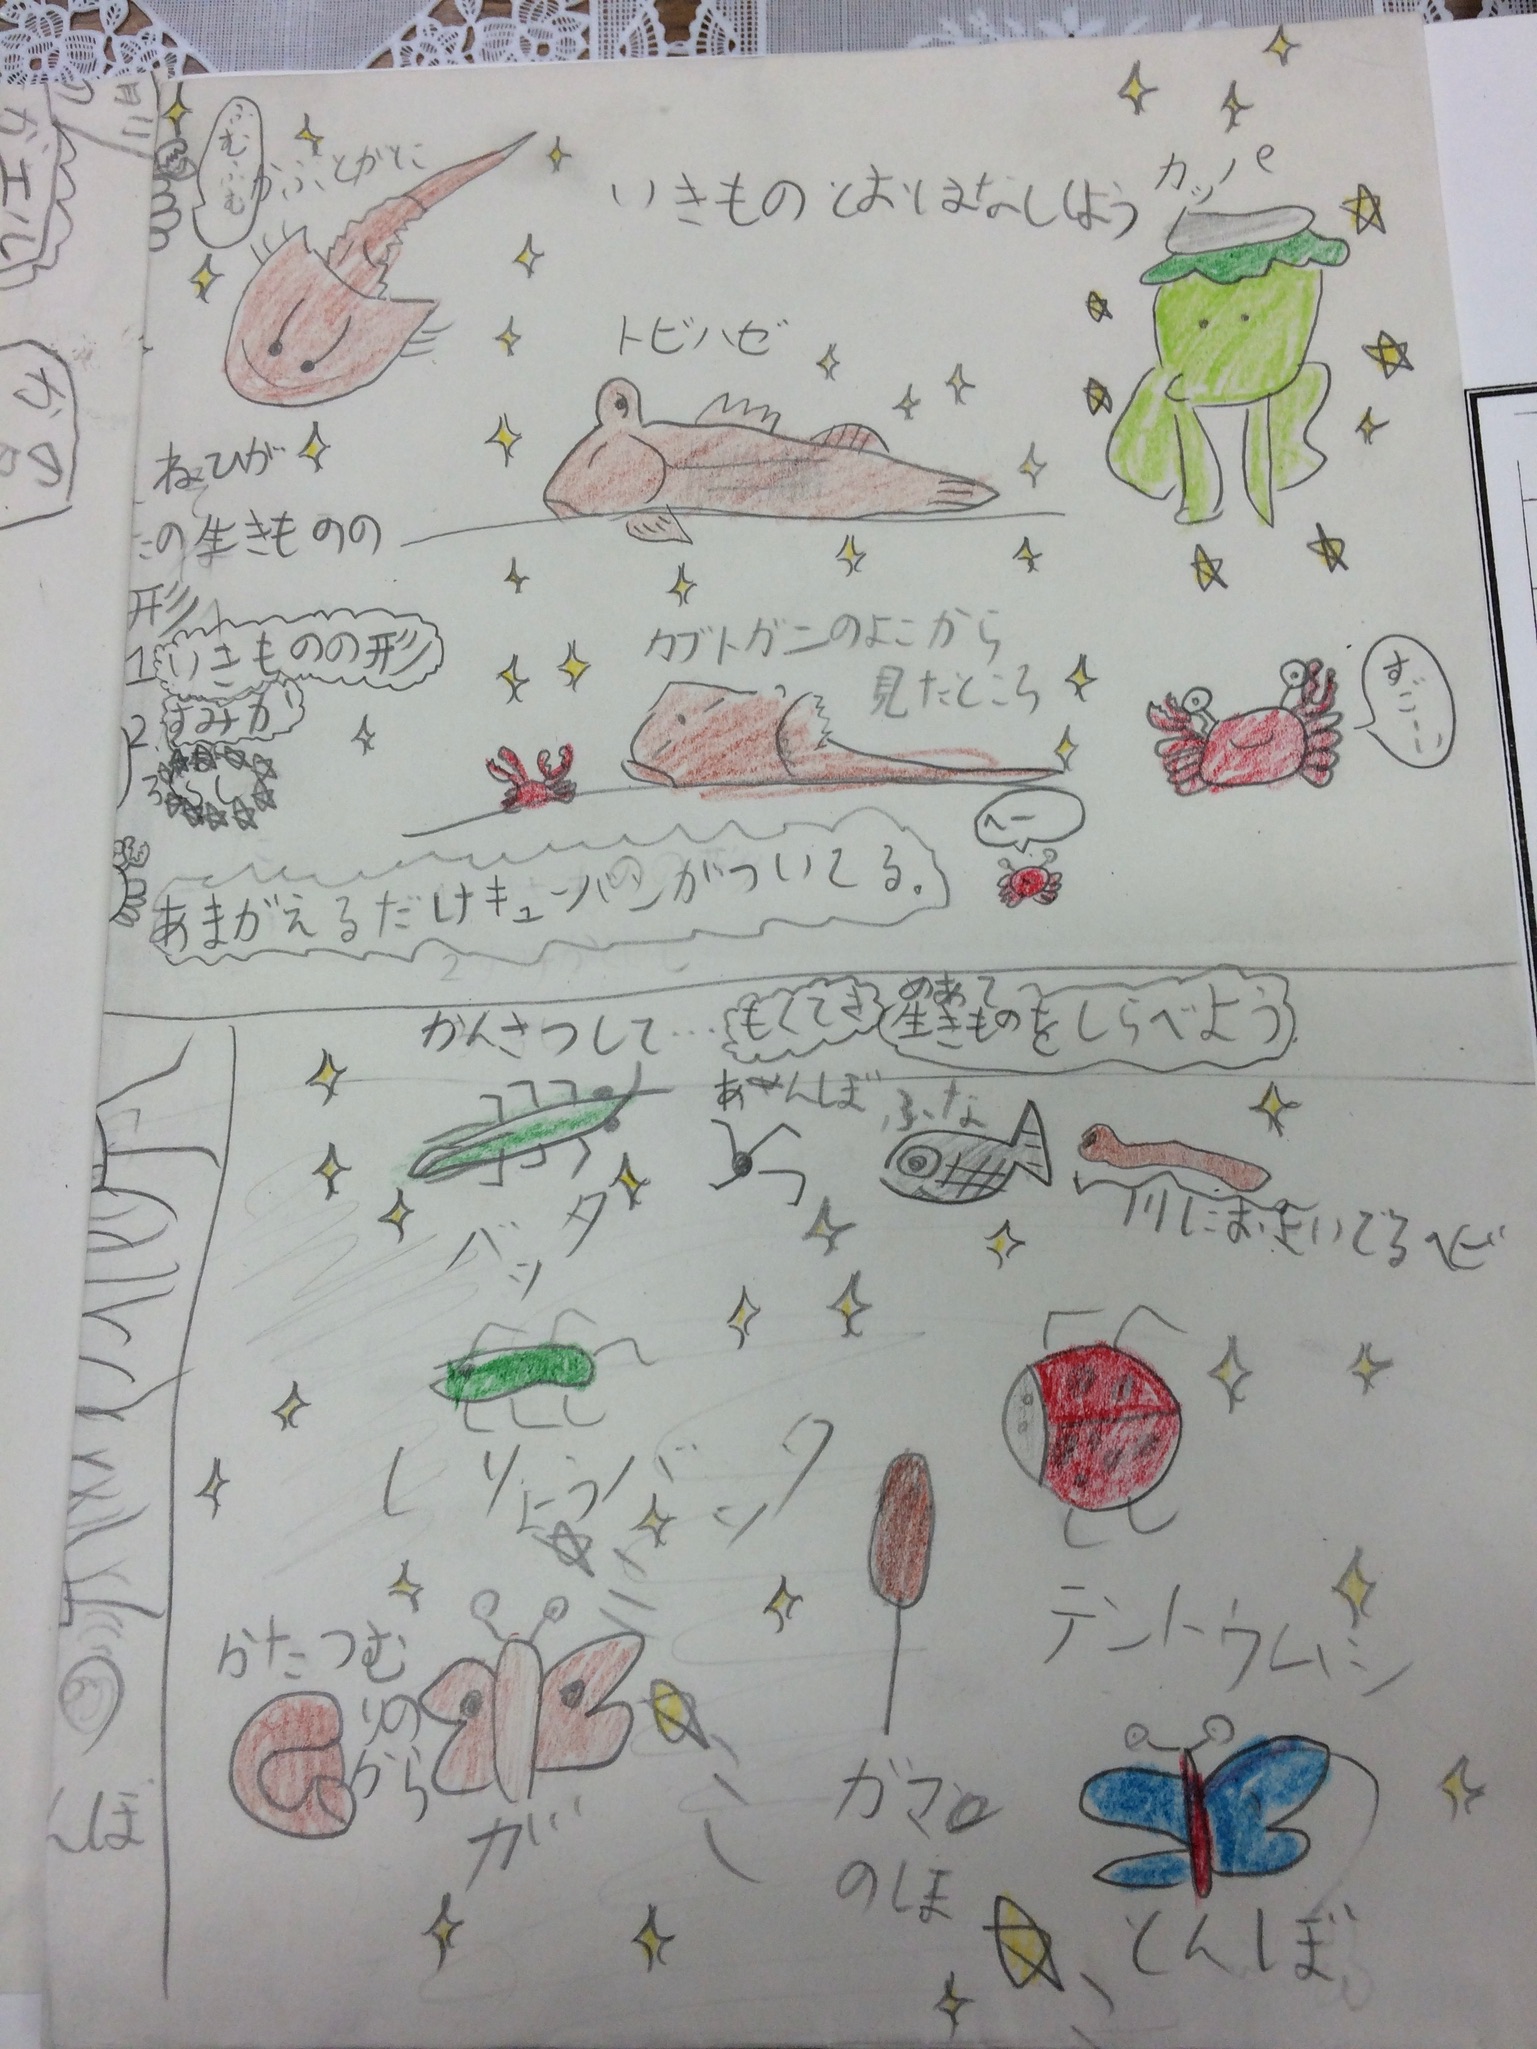 ふむふむ
かぶとがに
いきものとおはなしよう
カッパ
トビハゼ
ねひが
の生きものの
形
1 いきものの形
2 すみか
3 くらし
カブトガニのよこから
見たところ
すごーい
へー
あまがえるだけキューバンがついてる。
かんさつして…もくてき
めあて
生きものをしらべよう
バッタ
あめんぼ
ふな
川におよいでるヘビ
しょうりょうバッタ
テントウムシ
かたつむ
りの
から
が
ガマ
のほ
とんぼ
んぼ